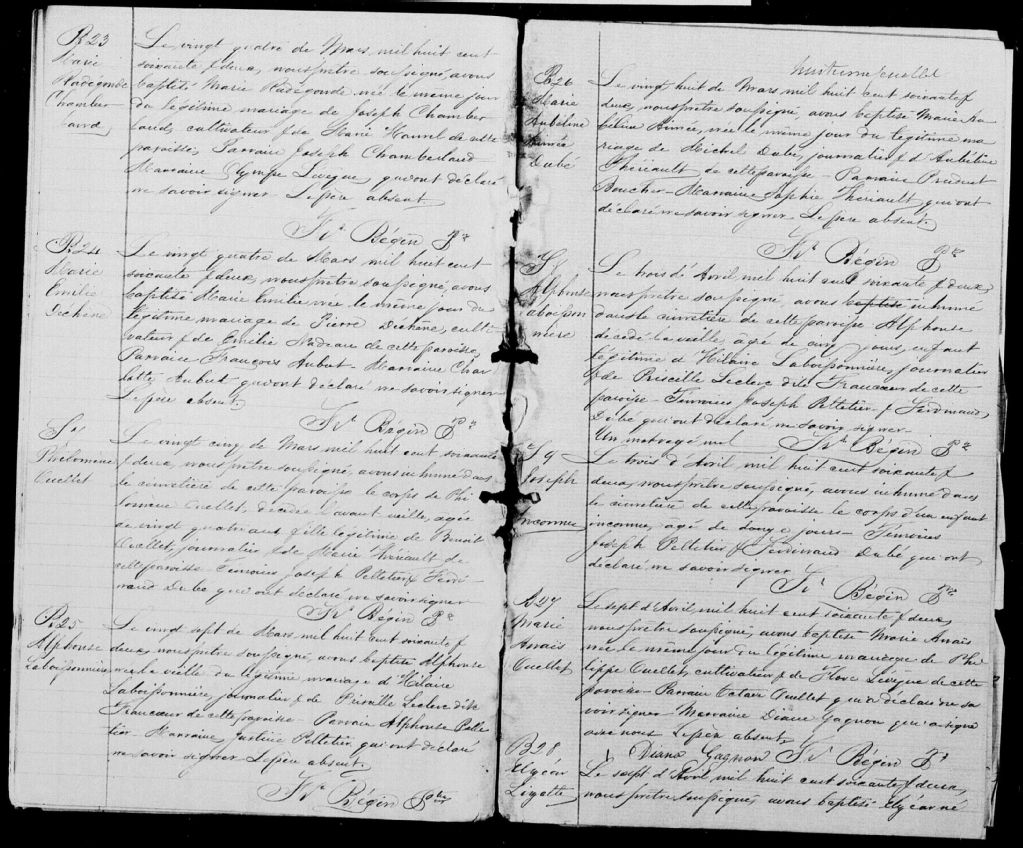 B23
Marie
Radégonde
Chamber-
land
Le vingt quatre de Mars mil huit cent
soixante & deux, nous prêtre soussigné, avons
baptisé Marie Radégonde née le même jour
du légitime mariage de Joseph Chamber
land, cultivateur & de Marie de cette
paroisse, Parrain Joseph Chamberland
Marraine Olympe Levêque, qui ont déclaré
ne savoir signer. Le père absent.
Bégin Ptre
B24
Marie
Emilie
Dechène
Le vingt quatre de Mars mil huit cent
soixante & deux, nous prêtre soussigné, avons
baptisé Marie Emilie née le même jour du
légitime mariage de Pierre Dechène, culti-
vateur & de Emélie Nadeau de cette paroisse,
Parrain François Aubut - Marraine Char
lotte Aubut qui ont déclaré ne savoir signer
Le père absent.
Bégin Ptre
Philomène
Ouellet
Le vingt cinq de Mars mil huit cent soixante
& deux, nous prêtre soussigné, avons inhumé dans
le cimetière de cette paroisse le corps de Phi
lomène Ouellet, décédée l'avant veille, agée
de vingt quatre ans fille légitime de Benoit
Ouellet, journalier, & de Marie Thériault de
cette paroisse Témoins Joseph Pelletier & Ferdi-
nand Dubé qui ont déclaré ne savoir signer
Bégin Ptre
B25
Alphonse
Laboissonnière
Le vingt sept de Mars mil huit cent soixante &
deux, nous prêtre soussigné, avons baptisé Alphonse
né la veille du légitime mariage d'Hilaire
Laboissonnière journalier & de Priscille Leclerc dite
Francoeur de cette paroisse - Parrain Alphonse Pelle
tier - Marraine Justine Pelletier, qui ont déclaré
ne savoir signer Le père absent.
Bégin Ptre
B26
Marie
Aubéline
Aimée
Dubé
Le vingt huit de Mars mil huit cent soixante &
deux, nous prêtre soussigné, avons baptisé Marie Au
béline Aimée, née le même jour du légitime ma
riage de Michel Dubé, journalier & d'Aubéline
Thériault de cette paroisse - Parrain Prudent
Boucher - Marraine Sophie Thériault qui ont
déclaré ne savoir signer Le père absent.
Bégin Ptre
S8
Alphonse
Laboisson
nière
Le trois d'Avril mil huit cent soixante & deux,
nous prêtre soussigné, avons baptisé inhumé
dans le cimetière de cette paroisse Alphonse
décédé la veille agé de cinq jours, enfant
légitime d'Hilaire Laboissonnière, journalier
& de Priscille Leclerc dite Francoeur de cette
paroisse - Témoins Joseph Pelletier & Ferdinand
Dubé qui ont déclaré ne savoir signer -
Un mot rayé nul
Bégin Ptre
S9
Joseph
Inconnu
Le trois d'Avril mil huit cent soixante &
deux, nous prêtre soussigné, avons inhumé dans
le cimetière de cette paroisse le corps d'un enfant
inconnu, agé de jours - Témoins
Joseph Pelletier & Ferdinand Dubé qui ont
déclaré ne savoir signer
Bégin Ptre
B27
Marie
Anaïs
Ouellet
Le sept d'Avril mil huit cent soixante & deux,
nous prêtre soussigné, avons baptisé Marie Anaïs
née le même jour du légitime mariage de Phi
lippe Ouellet, cultivateur & de Flore Levêque de cette
paroisse - Parrain Octave Ouellet qui a déclaré ne sa
voir signer Marraine Diana Gagnon qui a signé
avec nous Le père absent.
Diana Gagnon Bégin Ptre
B28
Elzéar
Lizotte
Le sept d'Avril mil huit cent soixante & deux,
nous prêtre soussigné, avons baptisé Elzéar né